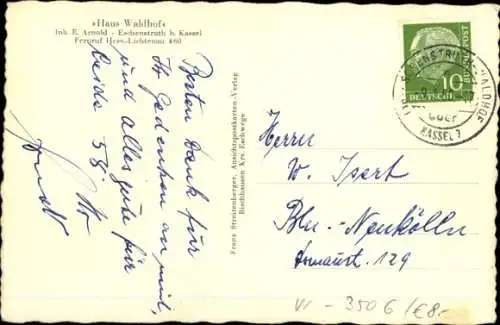 »Haus Waldhof«
Inh. E. Arnold - Eschenstruth b. Kassel
Fernruf Hess.-Lichtenau 460
Besten Dank für
Ihr Gedenken an mich,
und alles gute für
beide 58.
Franz Streitenberger, Ansichtspostkarten-Verlag
Bischhausen Krs. Eschwege
DEUTSCHE BUNDESPOST
10
ESCHENSTRUTH WALDHOF
über
KASSEL 7
Herrn
W. Isert
Bln.-Neukölln
129
W - 350 G / €8.-